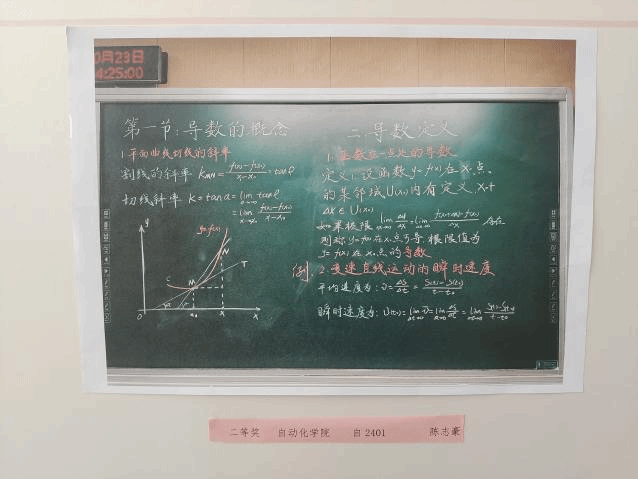 0月23日
4:25:00
第一节:导数的概念
1.平面曲线切线的斜率
割线的斜率 KMN = f(x)-f(x0) / x-x0 = tanφ
切线斜率 K=tanα = lim tanφ
= lim x→x0 f(x)-f(x0) / x-x0
y
y=f(x)
N
T
C
M
O
x0
x
X
二.导数定义
1.函数在一点处的导数
定义1:设函数 y=f(x)在x0点
的某邻域U(x0)内有定义,x0+
ΔX∈U(x0)
如果极限 lim Δx→0 Δy/Δx = lim Δx→0 f(x0+Δx)-f(x0) / Δx 存在
则称 y=f(x)在x0点可导,极限值为
y=f(x)在x0点的导数
例.2.变速直线运动的瞬时速度
平均速度为:v̄=ΔS/Δt= S(t)-S(t0) / t-t0
瞬时速度为:V(t0)=lim Δt→0 v̄=lim Δt→0 ΔS/Δt = lim S(t)-S(t0) / t-t0
二等奖 自动化学院 自2401 陈志豪